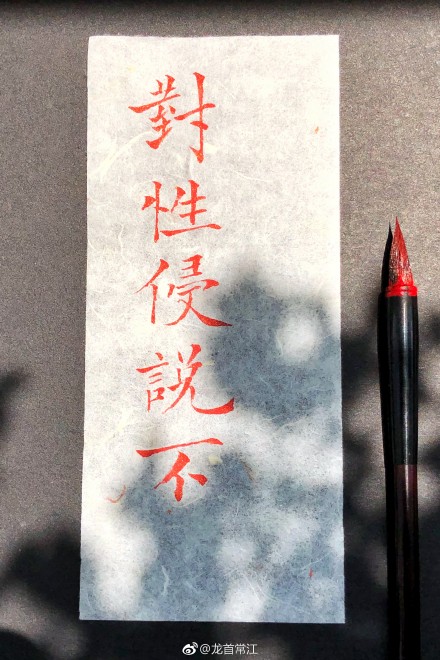 對性侵説不
@龙首常江